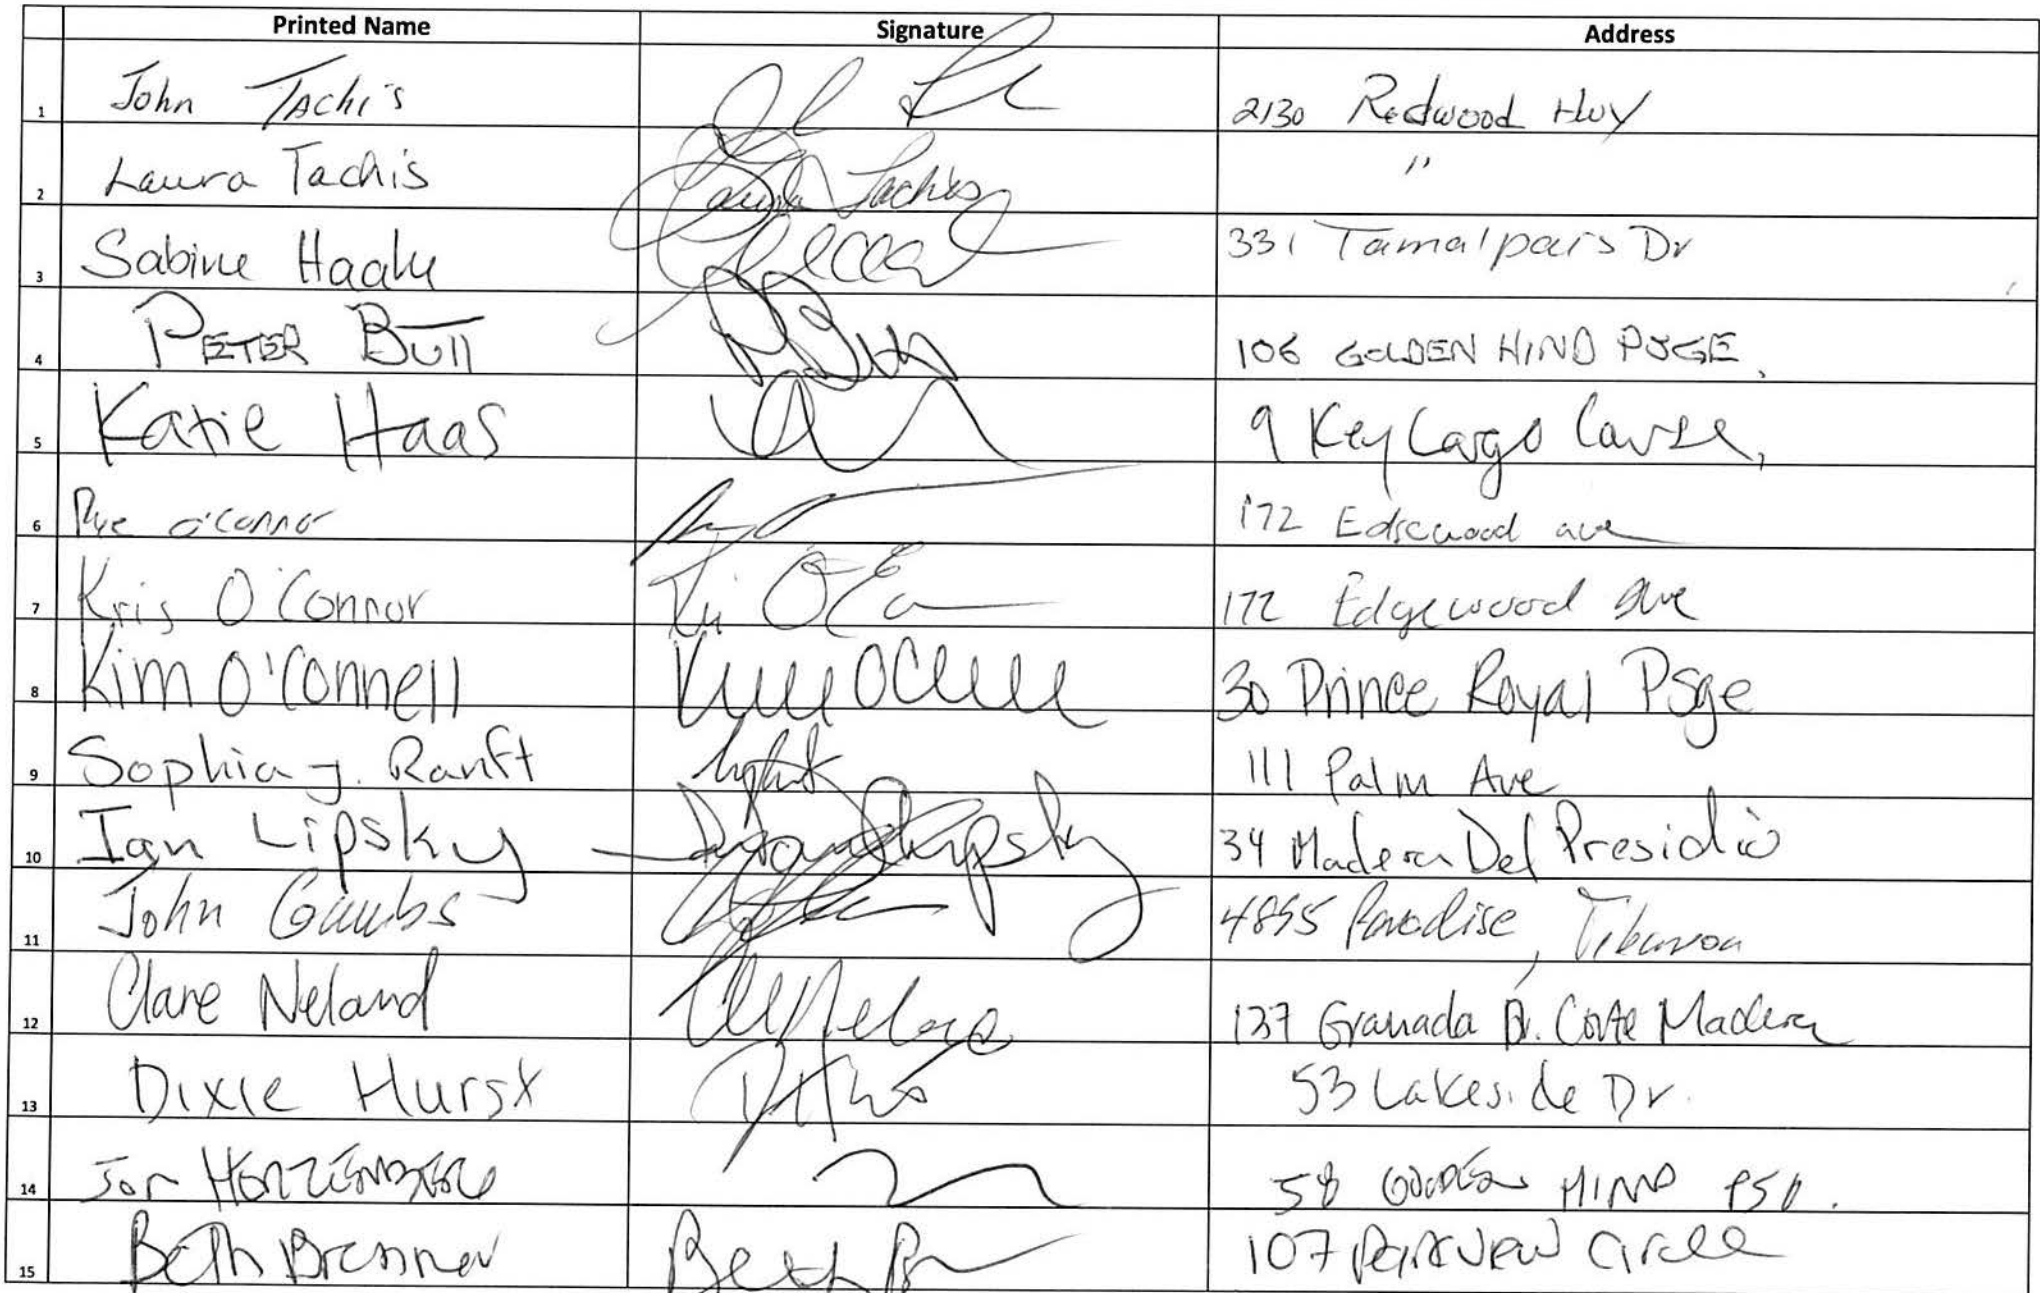 Printed Name Signature Address
1 John Tachis 2130 Redwood Hwy
2 Laura Tachis Laura Tachis "
3 Sabine Haake 331 Tamalpais Dr
4 PETER BUTT 106 GOLDEN HIND PSGE,
5 Katie Haas 9 Key Largo Course,
6 O'Connor 172 Edgewood ave
7 Kris O'Connor 172 Edgewood Ave
8 Kim O'Connell 30 Prince Royal Psge
9 Sophia J. Ranft 111 Palm Ave
10 Ian Lipsky Lipsky 34 Madera Del Presidio
11 John 4895 Paradise, Tiburon
12 Clare Neland 137 Granada Dr. Corte Madera
13 Dixie Hurst 53 Lakeside Dr.
14 Jon HERZENBERG 58 GOLDEN HIND PSG.
15 Beth Brenner Beth 107 Parkview Circle